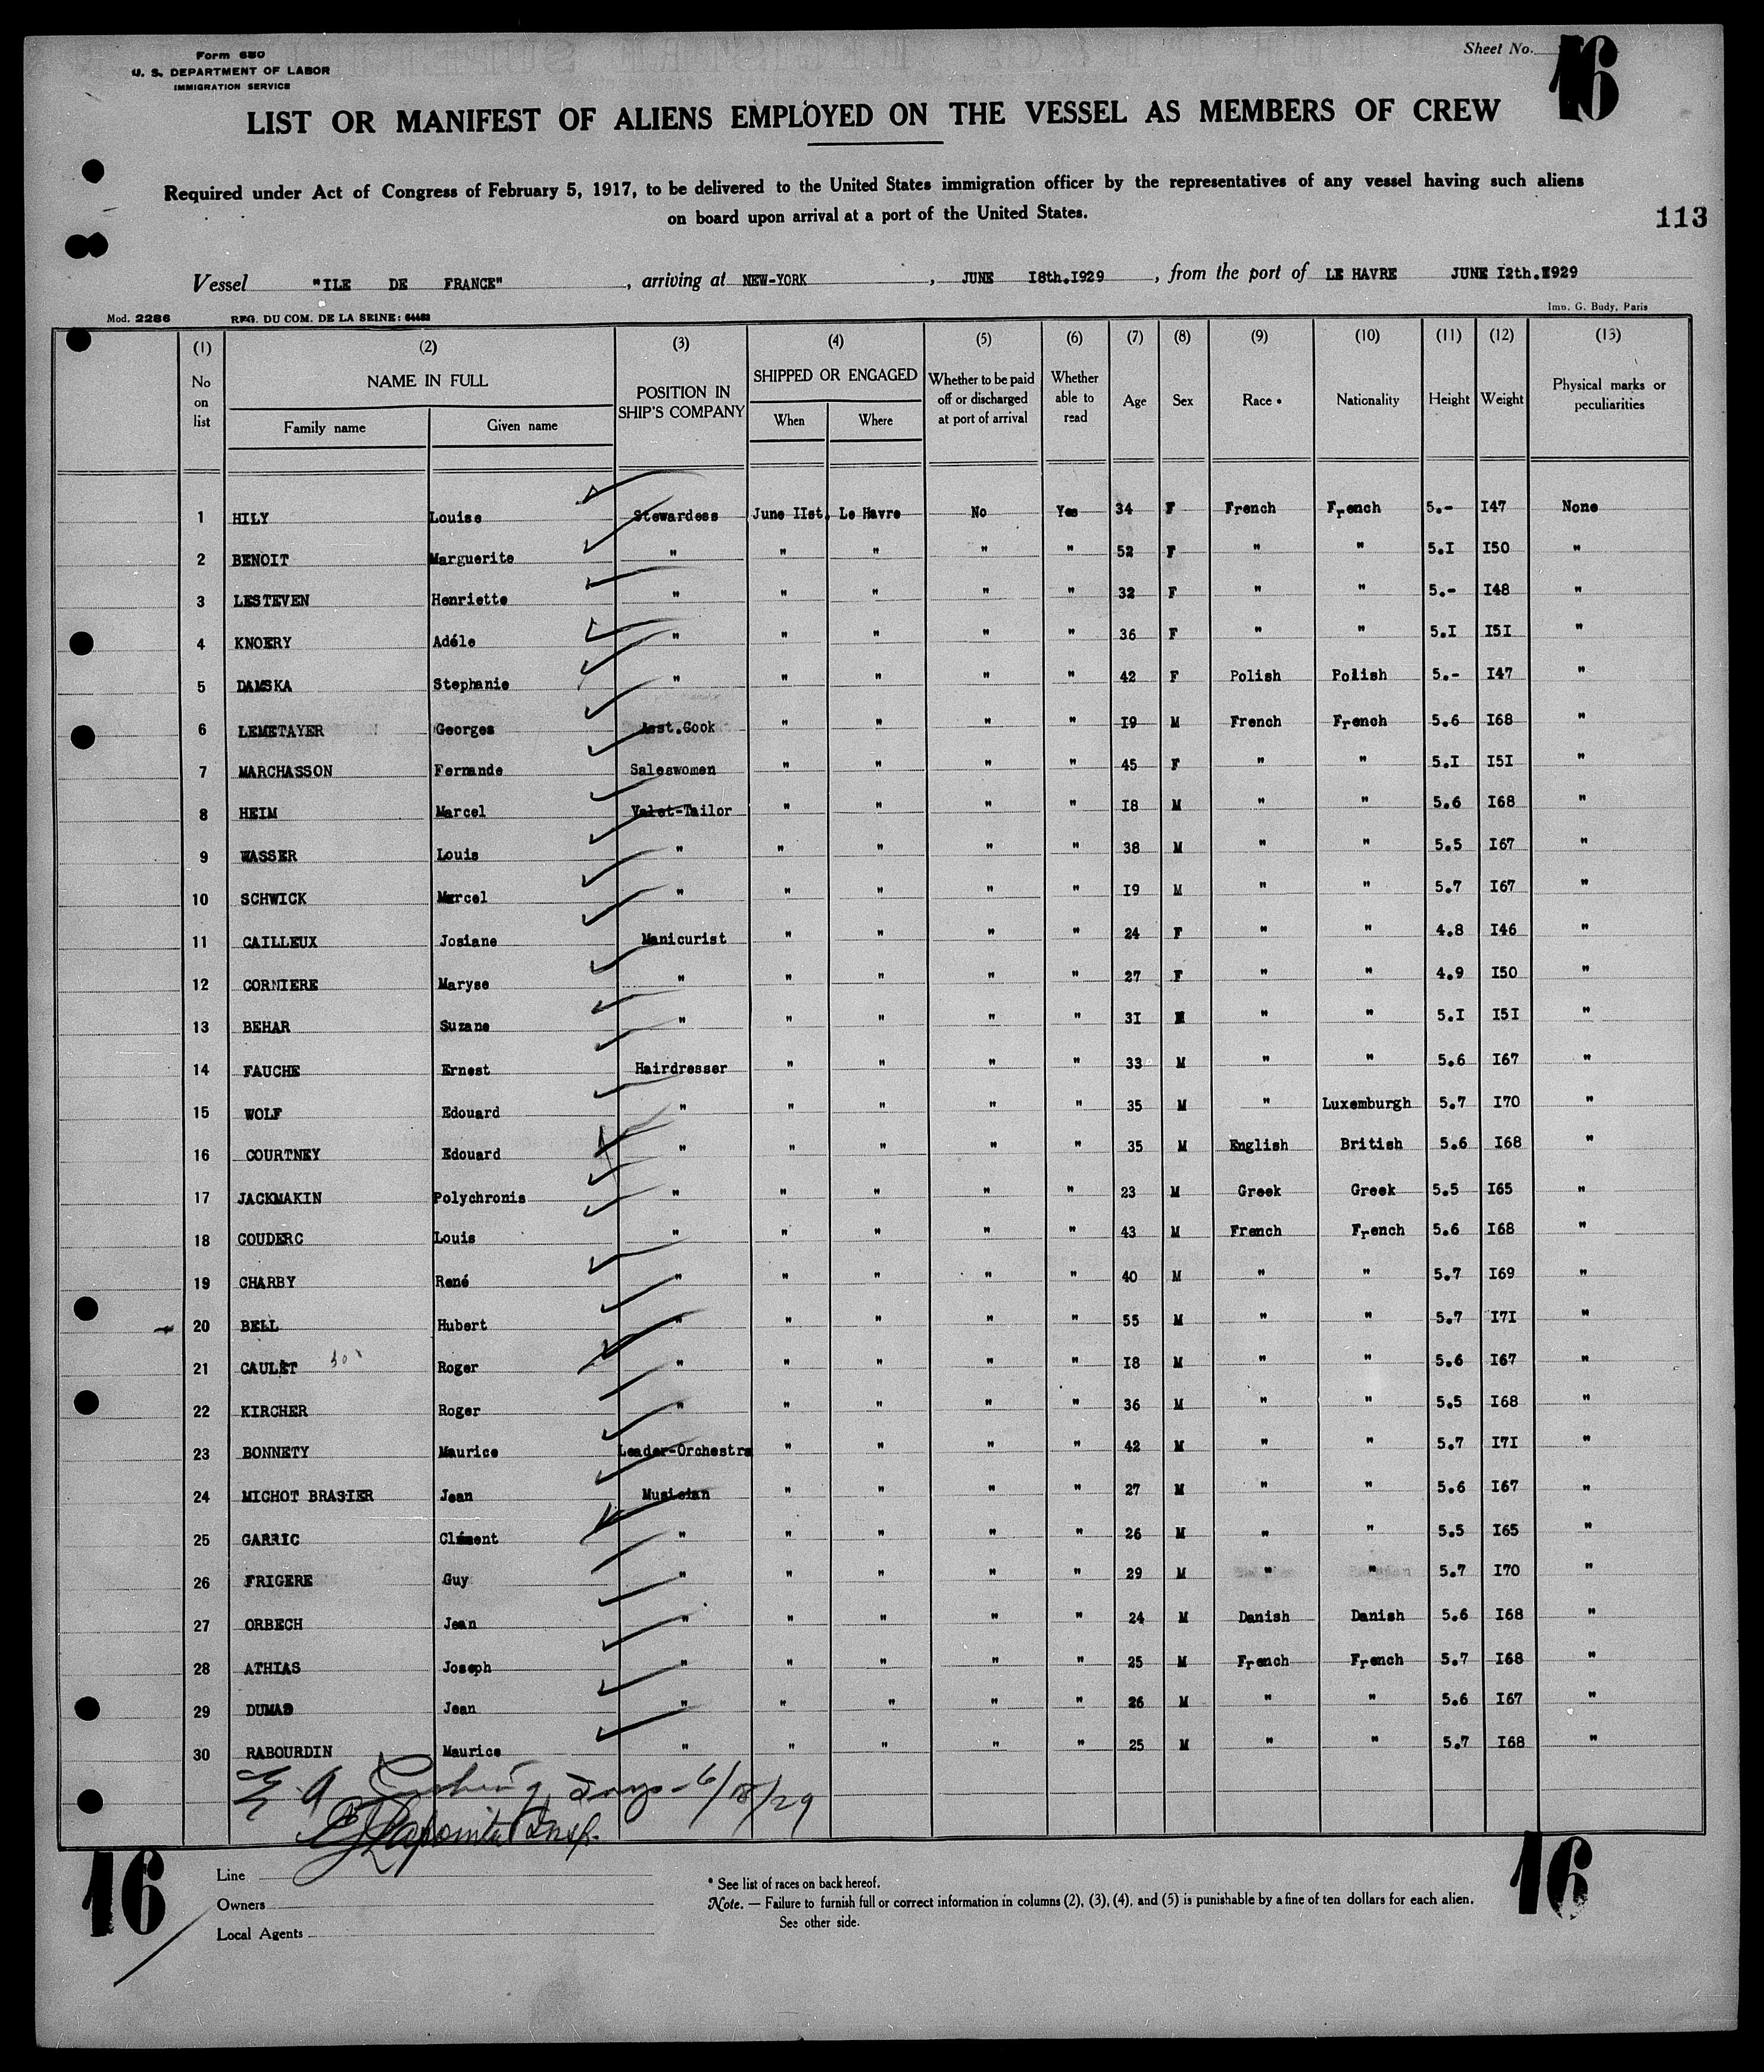 Form 680
U. S. DEPARTMENT OF LABOR
IMMIGRATION SERVICE
Sheet No. 16
LIST OR MANIFEST OF ALIENS EMPLOYED ON THE VESSEL AS MEMBERS OF CREW
Required under Act of Congress of February 5, 1917, to be delivered to the United States immigration officer by the representatives of any vessel having such aliens
on board upon arrival at a port of the United States.
113
Vessel "ILE DE FRANCE", arriving at NEW-YORK, JUNE I8th.I929, from the port of LE HAVRE JUNE I2th.I929
Mod. 2286 REG. DU COM. DE LA SEINE: Imp. G. Budy, Paris
(1) (2) (3) (4) (5) (6) (7) (8) (9) (10) (11) (12) (13)
No on list NAME IN FULL Family name Given name POSITION IN SHIP'S COMPANY SHIPPED OR ENGAGED When Where Whether to be paid off or discharged at port of arrival Whether able to read Age Sex Race * Nationality Height Weight Physical marks or peculiarities
1 HILY Louise Stewardess June IIst. Le Havre No Yes 34 F French French 5.- I47 None
2 BENOIT Marguerite " " " " " 52 F " " 5.I I50 "
3 LESTEVEN Henriette " " " " " 32 F " " 5.- I48 "
4 KNOERY Adéle " " " " " 36 F " " 5.I I5I "
5 DAMSKA Stephanie " " " " " 42 F Polish Polish 5.- I47 "
6 LEMETAYER Georges Asst.Cook " " " " I9 M French French 5.6 I68 "
7 MARCHASSON Fernande Saleswomen " " " " 45 F " " 5.I I5I "
8 HEIM Marcel Valet-Tailor " " " " I8 M " " 5.6 I68 "
9 WASSER Louis " " " " " 38 M " " 5.5 I67 "
10 SCHWICK Marcel " " " " " I9 M " " 5.7 I67 "
11 CAILLEUX Josiane Manicurist " " " " 24 F " " 4.8 I46 "
12 CORNIERE Maryse " " " " " 27 F " " 4.9 I50 "
13 BEHAR Suzane " " " " " 3I " " 5.I I5I "
14 FAUCHE Ernest Hairdresser " " " " 33 M " " 5.6 I67 "
15 WOLF Edouard " " " " " 35 M " Luxemburgh 5.7 I70 "
16 COURTNEY Edouard " " " " " 35 M English British 5.6 I68 "
17 JACKMAKIN Polychronis " " " " " 23 M Greek Greek 5.5 I65 "
18 COUDERC Louis " " " " " 43 M French French 5.6 I68 "
19 CHARBY René " " " " " 40 M " " 5.7 I69 "
20 BELL Hubert " " " " " 55 M " " 5.7 I7I "
21 CAULET Roger " " " " " I8 M " " 5.6 I67 "
22 KIRCHER Roger " " " " " 36 M " " 5.5 I68 "
23 BONNETY Maurice Leader-Orchestra " " " " 42 M " " 5.7 I7I "
24 MICHOT BRASIER Jean Musician " " " " 27 M " " 5.6 I67 "
25 GARRIC Clément " " " " " 26 M " " 5.5 I65 "
26 FRIGERE Guy " " " " " 29 M " " 5.7 I70 "
27 ORBECH Jean " " " " " 24 M Danish Danish 5.6 I68 "
28 ATHIAS Joseph " " " " " 25 M French French 5.7 I68 "
29 DUMAS Jean " " " " " 26 M " " 5.6 I67 "
30 RABOURDIN Maurice " " " " " 25 M " " 5.7 I68 "
6/18/29
16
16
Line
Owners
Local Agents
* See list of races on back hereof.
Note. — Failure to furnish full or correct information in columns (2), (3), (4), and (5) is punishable by a fine of ten dollars for each alien.
See other side.